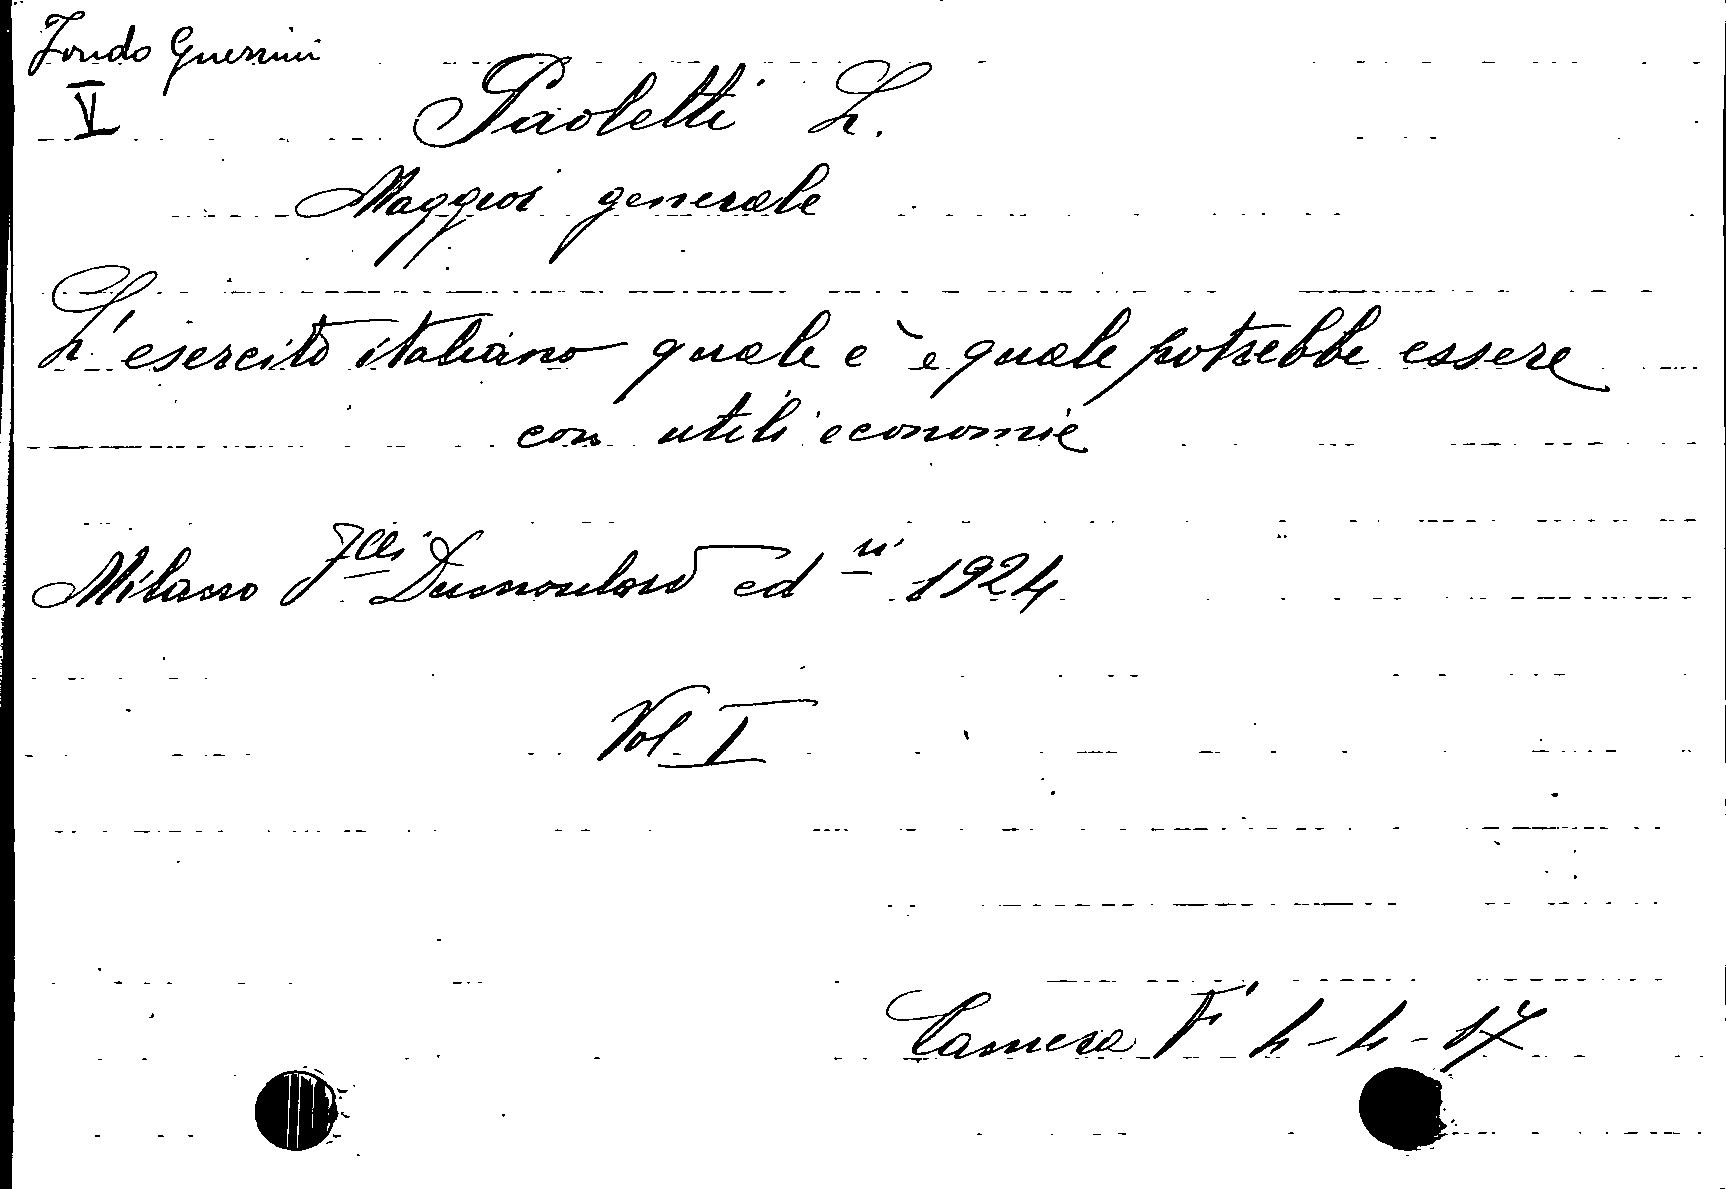 Fondo Guerrini
V
Paoletti L.
Maggior generale
L'esercito italiano quale è e quale potrebbe essere
con utili economie
Milano Flli Dumoulard ed ri 1924
Vol. I
Camera F 4-4-17